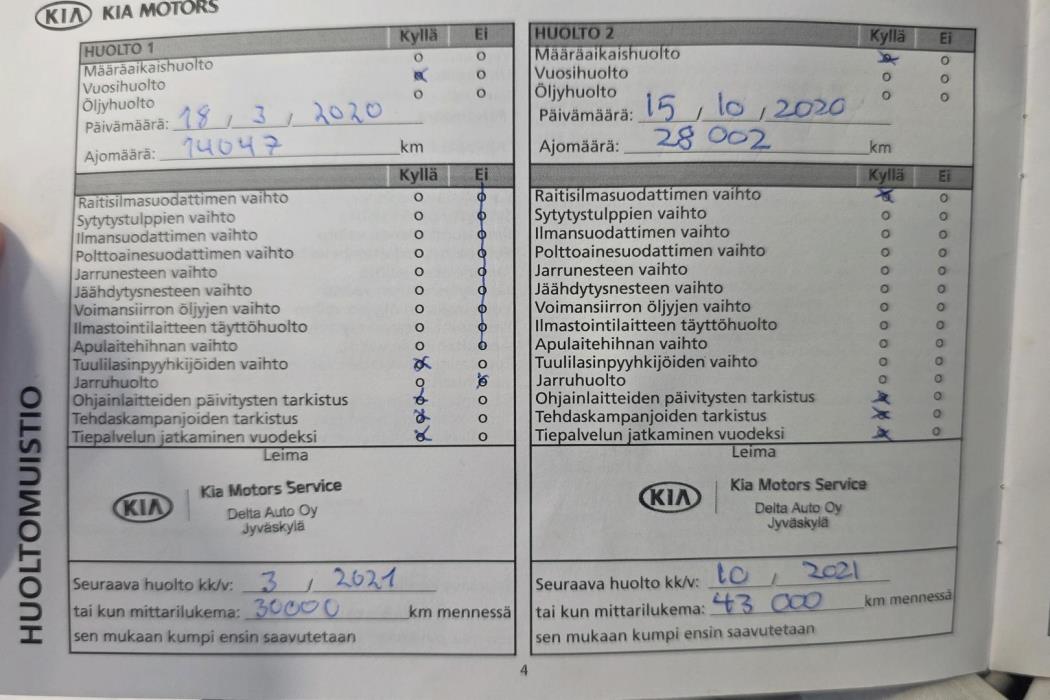 KIA KIA MOTORS
HUOLTO 1 Kyllä Ei
Määräaikaishuolto o o
Vuosihuolto x o
Öljyhuolto o o
Päivämäärä: 18 / 3 / 2020
Ajomäärä: 14047 km
Kyllä Ei
Raitisilmasuodattimen vaihto o o
Sytytystulppien vaihto o o
Ilmansuodattimen vaihto o o
Polttoainesuodattimen vaihto o o
Jarrunesteen vaihto o o
Jäähdytysnesteen vaihto o o
Voimansiirron öljyjen vaihto o o
Ilmastointilaitteen täyttöhuolto o o
Apulaitehihnan vaihto o o
Tuulilasinpyyhkijöiden vaihto x o
Jarruhuolto o x
Ohjainlaitteiden päivitysten tarkistus x o
Tehdaskampanjoiden tarkistus x o
Tiepalvelun jatkaminen vuodeksi x o
Leima
KIA Kia Motors Service
Delta Auto Oy
Jyväskylä
Seuraava huolto kk/v: 3 / 2021
tai kun mittarilukema: 30000 km mennessä
sen mukaan kumpi ensin saavutetaan
HUOLTO 2 Kyllä Ei
Määräaikaishuolto x o
Vuosihuolto o o
Öljyhuolto o o
Päivämäärä: 15 / 10 / 2020
Ajomäärä: 28 002 km
Kyllä Ei
Raitisilmasuodattimen vaihto x o
Sytytystulppien vaihto o o
Ilmansuodattimen vaihto o o
Polttoainesuodattimen vaihto o o
Jarrunesteen vaihto o o
Jäähdytysnesteen vaihto o o
Voimansiirron öljyjen vaihto o o
Ilmastointilaitteen täyttöhuolto o o
Apulaitehihnan vaihto o o
Tuulilasinpyyhkijöiden vaihto o o
Jarruhuolto o o
Ohjainlaitteiden päivitysten tarkistus x o
Tehdaskampanjoiden tarkistus x o
Tiepalvelun jatkaminen vuodeksi x o
Leima
KIA Kia Motors Service
Delta Auto Oy
Jyväskylä
Seuraava huolto kk/v: 10 / 2021
tai kun mittarilukema: 43 000 km mennessä
sen mukaan kumpi ensin saavutetaan
HUOLTOMUISTIO
4